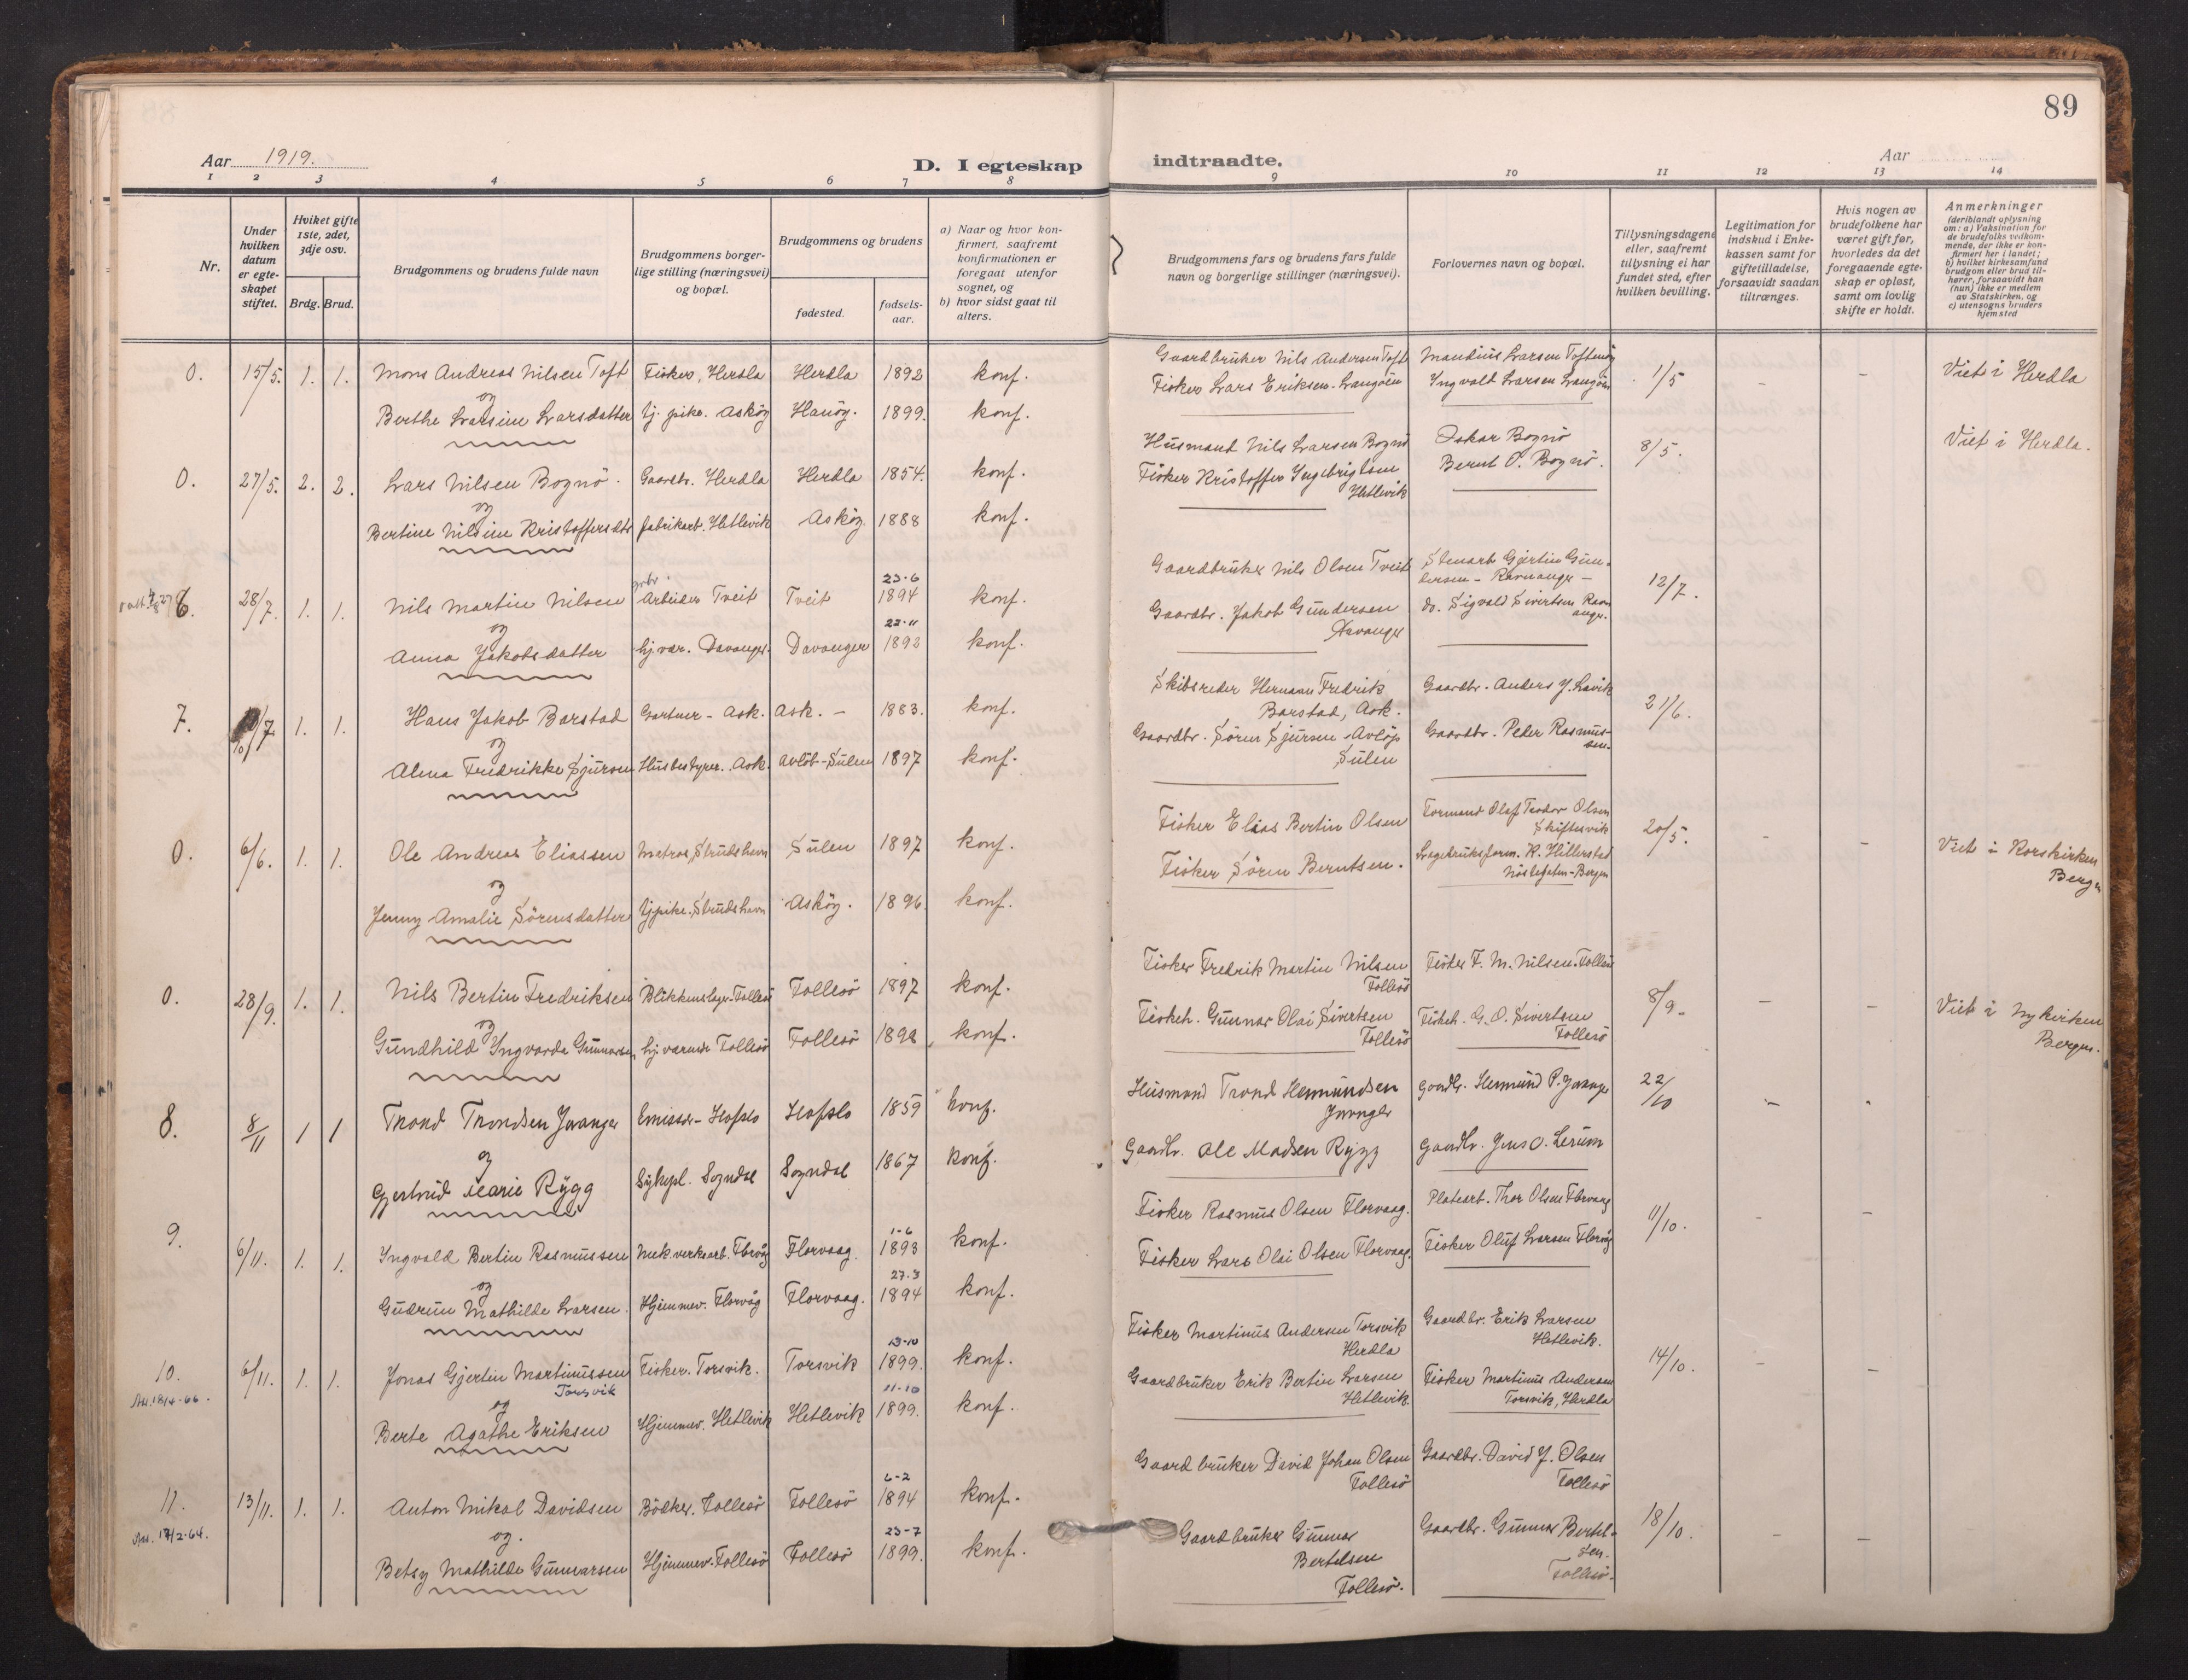 89
Aar 1919.
D. I egteskap
indtraadte.
Aar
1 2 3 4 5 6 7 8 9 10 11 12 13 14
Nr.
Under hvilken datum er egteskapet stiftet.
Hviket gifte 1ste, 2det, 3dje osv.
Brdg. Brud.
Brudgommens og brudens fulde navn
Brudgommens borgerlige stilling (næringsvei) og bopæl.
Brudgommens og brudens
fødested.
fødselsaar.
a) Naar og hvor konfirmert, saafremt konfirmationen er foregaat utenfor sognet, og
b) hvor sidst gaat til alters.
Brudgommens fars og brudens fars fulde navn og borgerlige stillinger (næringsvei).
Forlovernes navn og bopæl.
Tillysningsdagene eller, saafremt tillysning ei har fundet sted, efter hvilken bevilling.
Legitimation for indskud i Enkekassen samt for giftetilladelse, forsaavidt saadan tiltrænges.
Hvis nogen av brudefolkene har været gift før, hvorledes da det foregaaende egteskap er opløst, samt om lovlig skifte er holdt.
Anmerkninger
(deriblandt oplysning om: a) Vaksination for de brudefolks vedkommende, der ikke er konfirmert her i landet;
b) hvilket kirkesamfund brudgom eller brud tilhører, forsaavidt han (hun) ikke er medlem av Statskirken, og
c) utensogns bruders hjemsted
0. 15/5. 1. 1. Mons Andreas Nilsen Toft Fisker, Herdla Herdla 1892 konf. Gaardbruker Nils Andersen Toft Mandius Larsen Toftenøy 1/5 - - Viet i Herdla
og
Berthe Larsine Larsdatter tj. pike. Askøy Hanøy. 1899. konf. Fisker Lars Eriksen Langöen Ingvald Larsen Langöen
0. 27/5. 2. 2. Lars Nilsen Bognö Gaardbr. Herdla Herdla 1854. konf. Husmand Nils Larsen Bognö Oskar Bognö 8/5. Viet i Herdla.
og
Bertine Nilsine Kristoffersdtr fabrikarb. Hetlevik Askøy 1888 konf. Fisker Kristoffer Ingebrigtsen Hetlevik Bernt O. Bognö.
6. 28/7. 1. 1. Nils Martin Nilsen Arbeider Tveit Tveit 23-6 1894 konf. Gaardbruker Nils Olsen Tveit Stenarb Gjertin Gundersen - Ravnanger - 12/7.
og
Anna Jakobsdatter hj. vær. Davanger. Davanger 22-11 1892 konf. Gaardbr. Jakob Gundersen Davanger do. Sigvald Sivertsen Ravnanger.
7. 10/7. 1. 1. Hans Jakob Barstad Gartner - Ask. Ask. - 1883. konf. Skibsreder Herman Fredrik Barstad, Ask. Gaardbr. Anders J. Lavik 21/6.
og
Alma Fredrikke Sjursen Husbestyrer. Ask. Avlöb-Sulen 1897 konf. Gaardbr. Sören Sjursen Avlöp Sulen Gaardbr. Peder Rasmussen.
0. 6/6. 1. 1. Ole Andreas Eliassen Matros, Strudshavn Sulen 1897 konf. Fisker Elias Bertin Olsen Formand Olaf Teodor Olsen Skiftesvik 20/5. - - Viet i Korskirken Bergen
og
Jenny Amalie Sörensdatter tjpike. Strudshavn Askøy. 1896. konf. Fisker Sören Berntsen. K. Hillerstad Nöstegaten - Bergen
0. 28/9. 1. 1. Nils Bertin Fredriksen Blikkenslager. Follesö Follesö 1897 konf. Fisker Fredrik Martin Nilsen Follesö Fisker F. M. Nilsen. Follesö 8/9. - - Viet i Nykirken Bergen.
og
Gundhild Ingvarda Gunnarsen hj. værende Follesö Follesö 1898 konf. Fiskeh. Gunnar Olai Sivertsen Follesö Fiskeh. G. O. Sivertsen Follesö
8. 8/11 1 1 Trond Trondsen Jnvanger Emissær - Hafslo Hafslo 1859 konf. Husmand Trond Hermundsen Jnvanger Gaardbr. Hermund P. Jnvanger 22/10 -
og
Gjertrud Marie Rygg Sykepl. Sogndal Sogndal 1867 konf. Gaardbr. Ole Madsen Rygg Gaardbr. Jens O. Lerum
9. 6/11. 1. 1. Ingvald Bertin Rasmussen Mek. verksarb. Florvåg Florvaag. 1-6 1893 konf. Fisker Rasmus Olsen Florvaag. Platearb. Thor Olsen Florvaag 11/10. - -
og
Gudrun Mathilde Larsen. Hjemmev. Florvåg Florvaag. 27-3 1894 konf. Fisker Lars Olai Olsen Florvaag. Fisker Oluf Larsen Florvåg
10. 6/11. 1. 1. Jonas Gjertin Martinussen Torsvik Fisker. Torsvik. Torsvik 13-10 1899. konf. Fisker Martinus Andersen Torsvik Herdla Gaardbr. Erik Larsen Hetlevik. 14/10. - -
og
Berte Agathe Eriksen Hjemmev. Hetlevik Hetlevik 11-10 1899. konf. Gaardbruker Erik Bertin Larsen Hetlevik. Fisker Martinus Andersen Torsvik, Herdla
11. 13/11. 1. 1. Anton Mikal Davidsen Bödker. Follesö Follesö 6-2 1894 konf. Gaardbruker David Johan Olsen Follesö Gaardbr. David J. Olsen Follesö 18/10. - -
og.
Betsy Mathilde Gunnarsen Hjemmev. Follesö Follesö 23-7 1899. konf. Gaardbruker Gunnar Bertelsen Follesö. Gaardbr. Gunnar Bertelsen. Follesö.